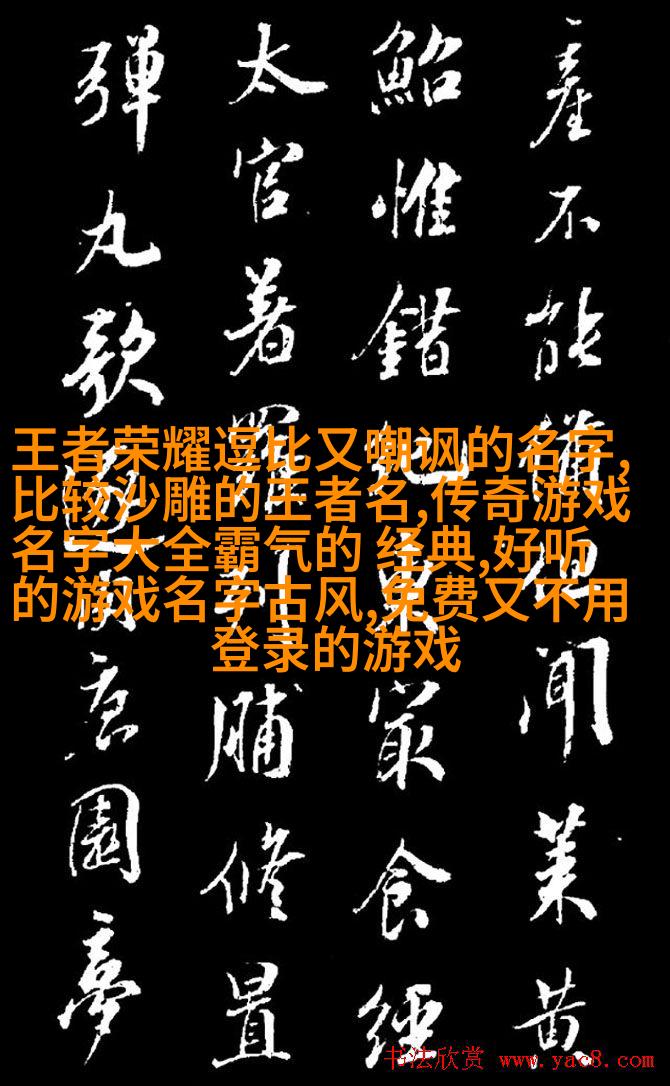 產不能聞黄
鮐惟錯紀最食經
太官著羅列脯修置
彈丸園夢
王者荣耀逗比又嘲讽的名字,
比较沙雕的王者名,传奇游戏
名字大全霸气的 经典,好听
的游戏名字古风,免费又不用
登录的游戏
书法欣赏 www.yac8.com